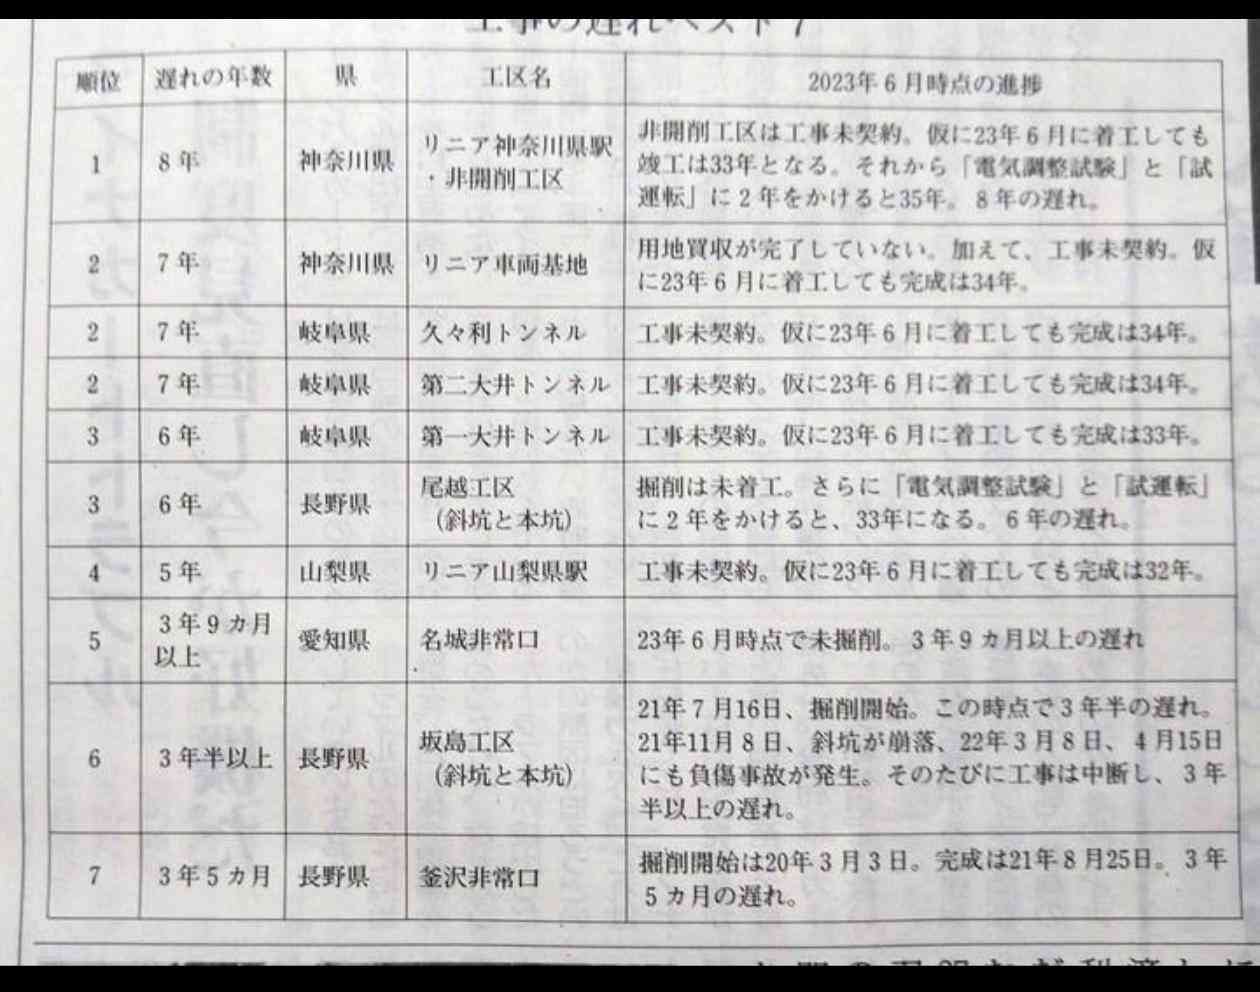 工事の遅れベスト7
順位 遅れの年数 県 工区名 2023年6月時点の進捗
1 8年 神奈川県 リニア神奈川県駅
・非開削工区
非開削工区は工事未契約。仮に23年6月に着工しても
竣工は33年となる。それから「電気調整試験」と「試
運転」に2年をかけると35年。8年の遅れ。
2 7年 神奈川県 リニア車両基地
用地買収が完了していない。加えて、工事未契約。仮
に23年6月に着工しても完成は34年。
2 7年 岐阜県 久々利トンネル 工事未契約。仮に23年6月に着工しても完成は34年。
2 7年 岐阜県 第二大井トンネル 工事未契約。仮に23年6月に着工しても完成は34年。
3 6年 岐阜県 第一大井トンネル 工事未契約。仮に23年6月に着工しても完成は33年。
3 6年 長野県 尾越工区
(斜坑と本坑)
掘削は未着工。さらに「電気調整試験」と「試運転」
に2年をかけると、33年になる。6年の遅れ。
4 5年 山梨県 リニア山梨県駅 工事未契約。仮に23年6月に着工しても完成は32年。
5 3年9カ月
以上
愛知県 名城非常口 23年6月時点で未掘削。3年9カ月以上の遅れ
6 3年半以上 長野県 坂島工区
(斜坑と本坑)
21年7月16日、掘削開始。この時点で3年半の遅れ。
21年11月8日、斜坑が崩落、22年3月8日、4月15日
にも負傷事故が発生。そのたびに工事は中断し、3年
半以上の遅れ。
7 3年5カ月 長野県 釜沢非常口
掘削開始は20年3月3日。完成は21年8月25日。3年
5カ月の遅れ。